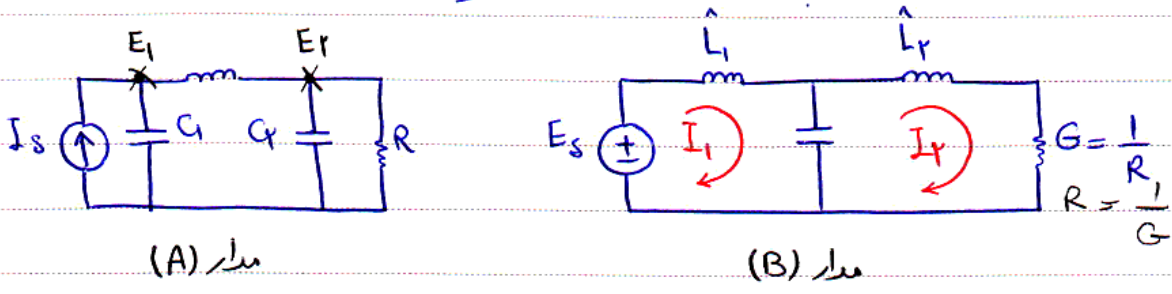 E۱ E۲
I_s C۱ C۲ R
مدار (A)
L̂۱ L̂۲
E_s I۱ I۲ G = ۱/R۱
R = ۱/G
مدار (B)